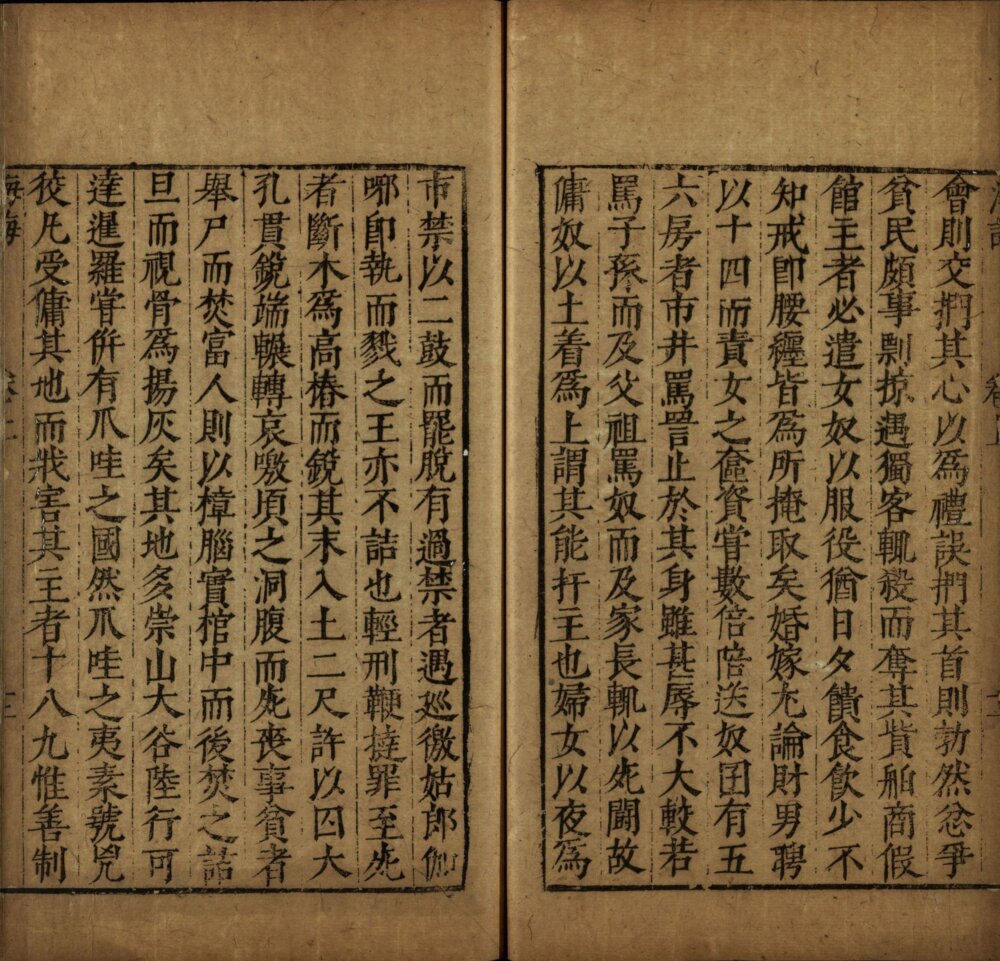 會則交捫其心以爲禮誤捫其首則勃然忿爭
貧民頗事剽掠遇獨客輒殺而奪其貲舶商假
館主者必遣女奴以服役猶日夕饋食飲少不
知戒卽腰纏皆爲所掩取矣婚嫁尤論財男聘
以十四而責女之奩資甞數倍陪送奴囝有五
六房者市井罵詈止於其身雖甚辱不大較若
罵子孫而及父祖罵奴而及家長輒以死鬪故
傭奴以土着爲上謂其能扞主也婦女以夜爲
市禁以二鼓而罷脫有過禁者遇巡徼姑郎伽
哪卽執而戮之王亦不詰也輕刑鞭撻罪至死
者斷木爲高樁而銳其末入土二尺許以囚大
孔貫銳端輾轉哀噭頃之洞腹而死喪事貧者
舉尸而焚富人則以樟腦實棺中而後焚之詰
旦而視骨爲揚灰矣其地多崇山大谷陸行可
達暹羅甞併有爪哇之國然爪哇之夷素號兇
狡凡受傭其地而戕害其主者十八九惟善制